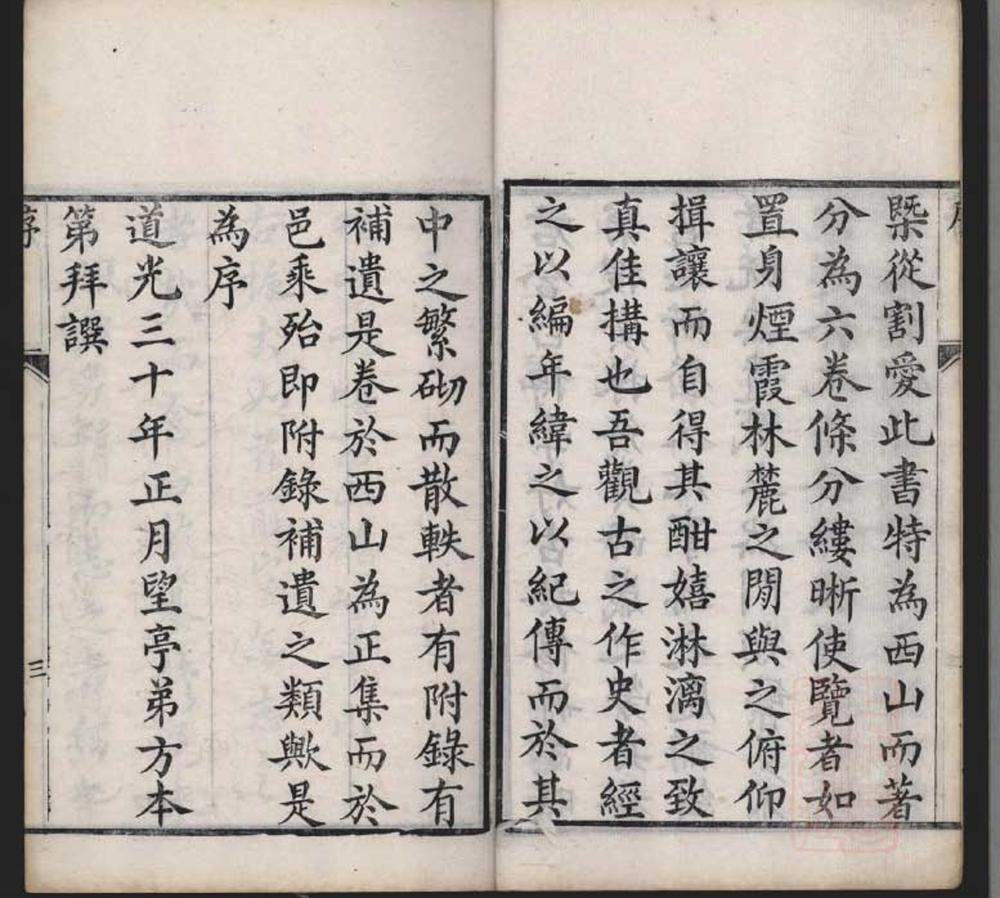 槩從割愛此書特為西山而著
分為六卷條分縷晰使覽者如
置身煙霞林麓之閒與之俯仰
揖讓而自得其酣嬉淋漓之致
真佳搆也吾觀古之作史者經
之以編年緯之以紀傳而於其
中之繁砌而散軼者有附錄有
補遺是卷於西山為正集而於
邑乘殆即附錄補遺之類歟是
為序
道光三十年正月朢亭弟方本
第拜譔
序
三